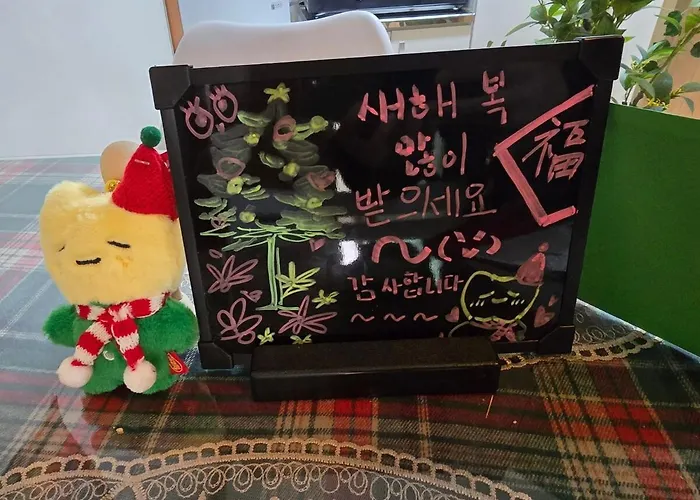 새해 복
많이
받으세요
~(^^)
감사합니다
~~~
福